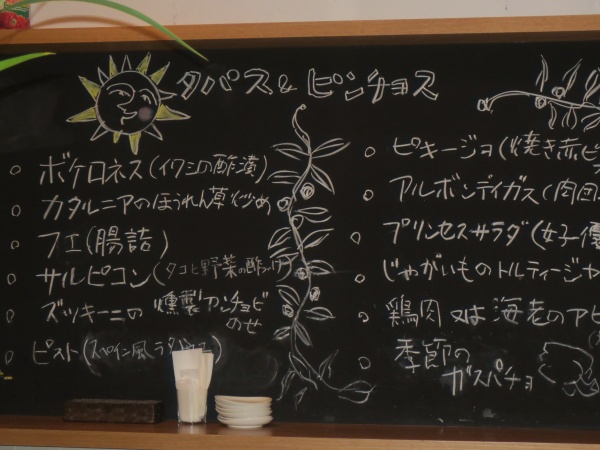 タパス & ピンチョス
○ ボケロネス(イワシの酢漬)
○ カタルニアのほうれん草炒め
○ フエ(腸詰)
○ サルピコン(タコと野菜の酢づけ)
○ ズッキーニの燻製アンチョビ
のせ
○ ピスト(スペイン風ラタトゥユ)
○ ピキージョ(焼き赤ピ
○ アルボンディガス(肉団
○ プリンセスサラダ(女子優
○ じゃがいものトルティージャ
○ 鶏肉又は海老のアヒ
○ 季節の
ガスパチョ